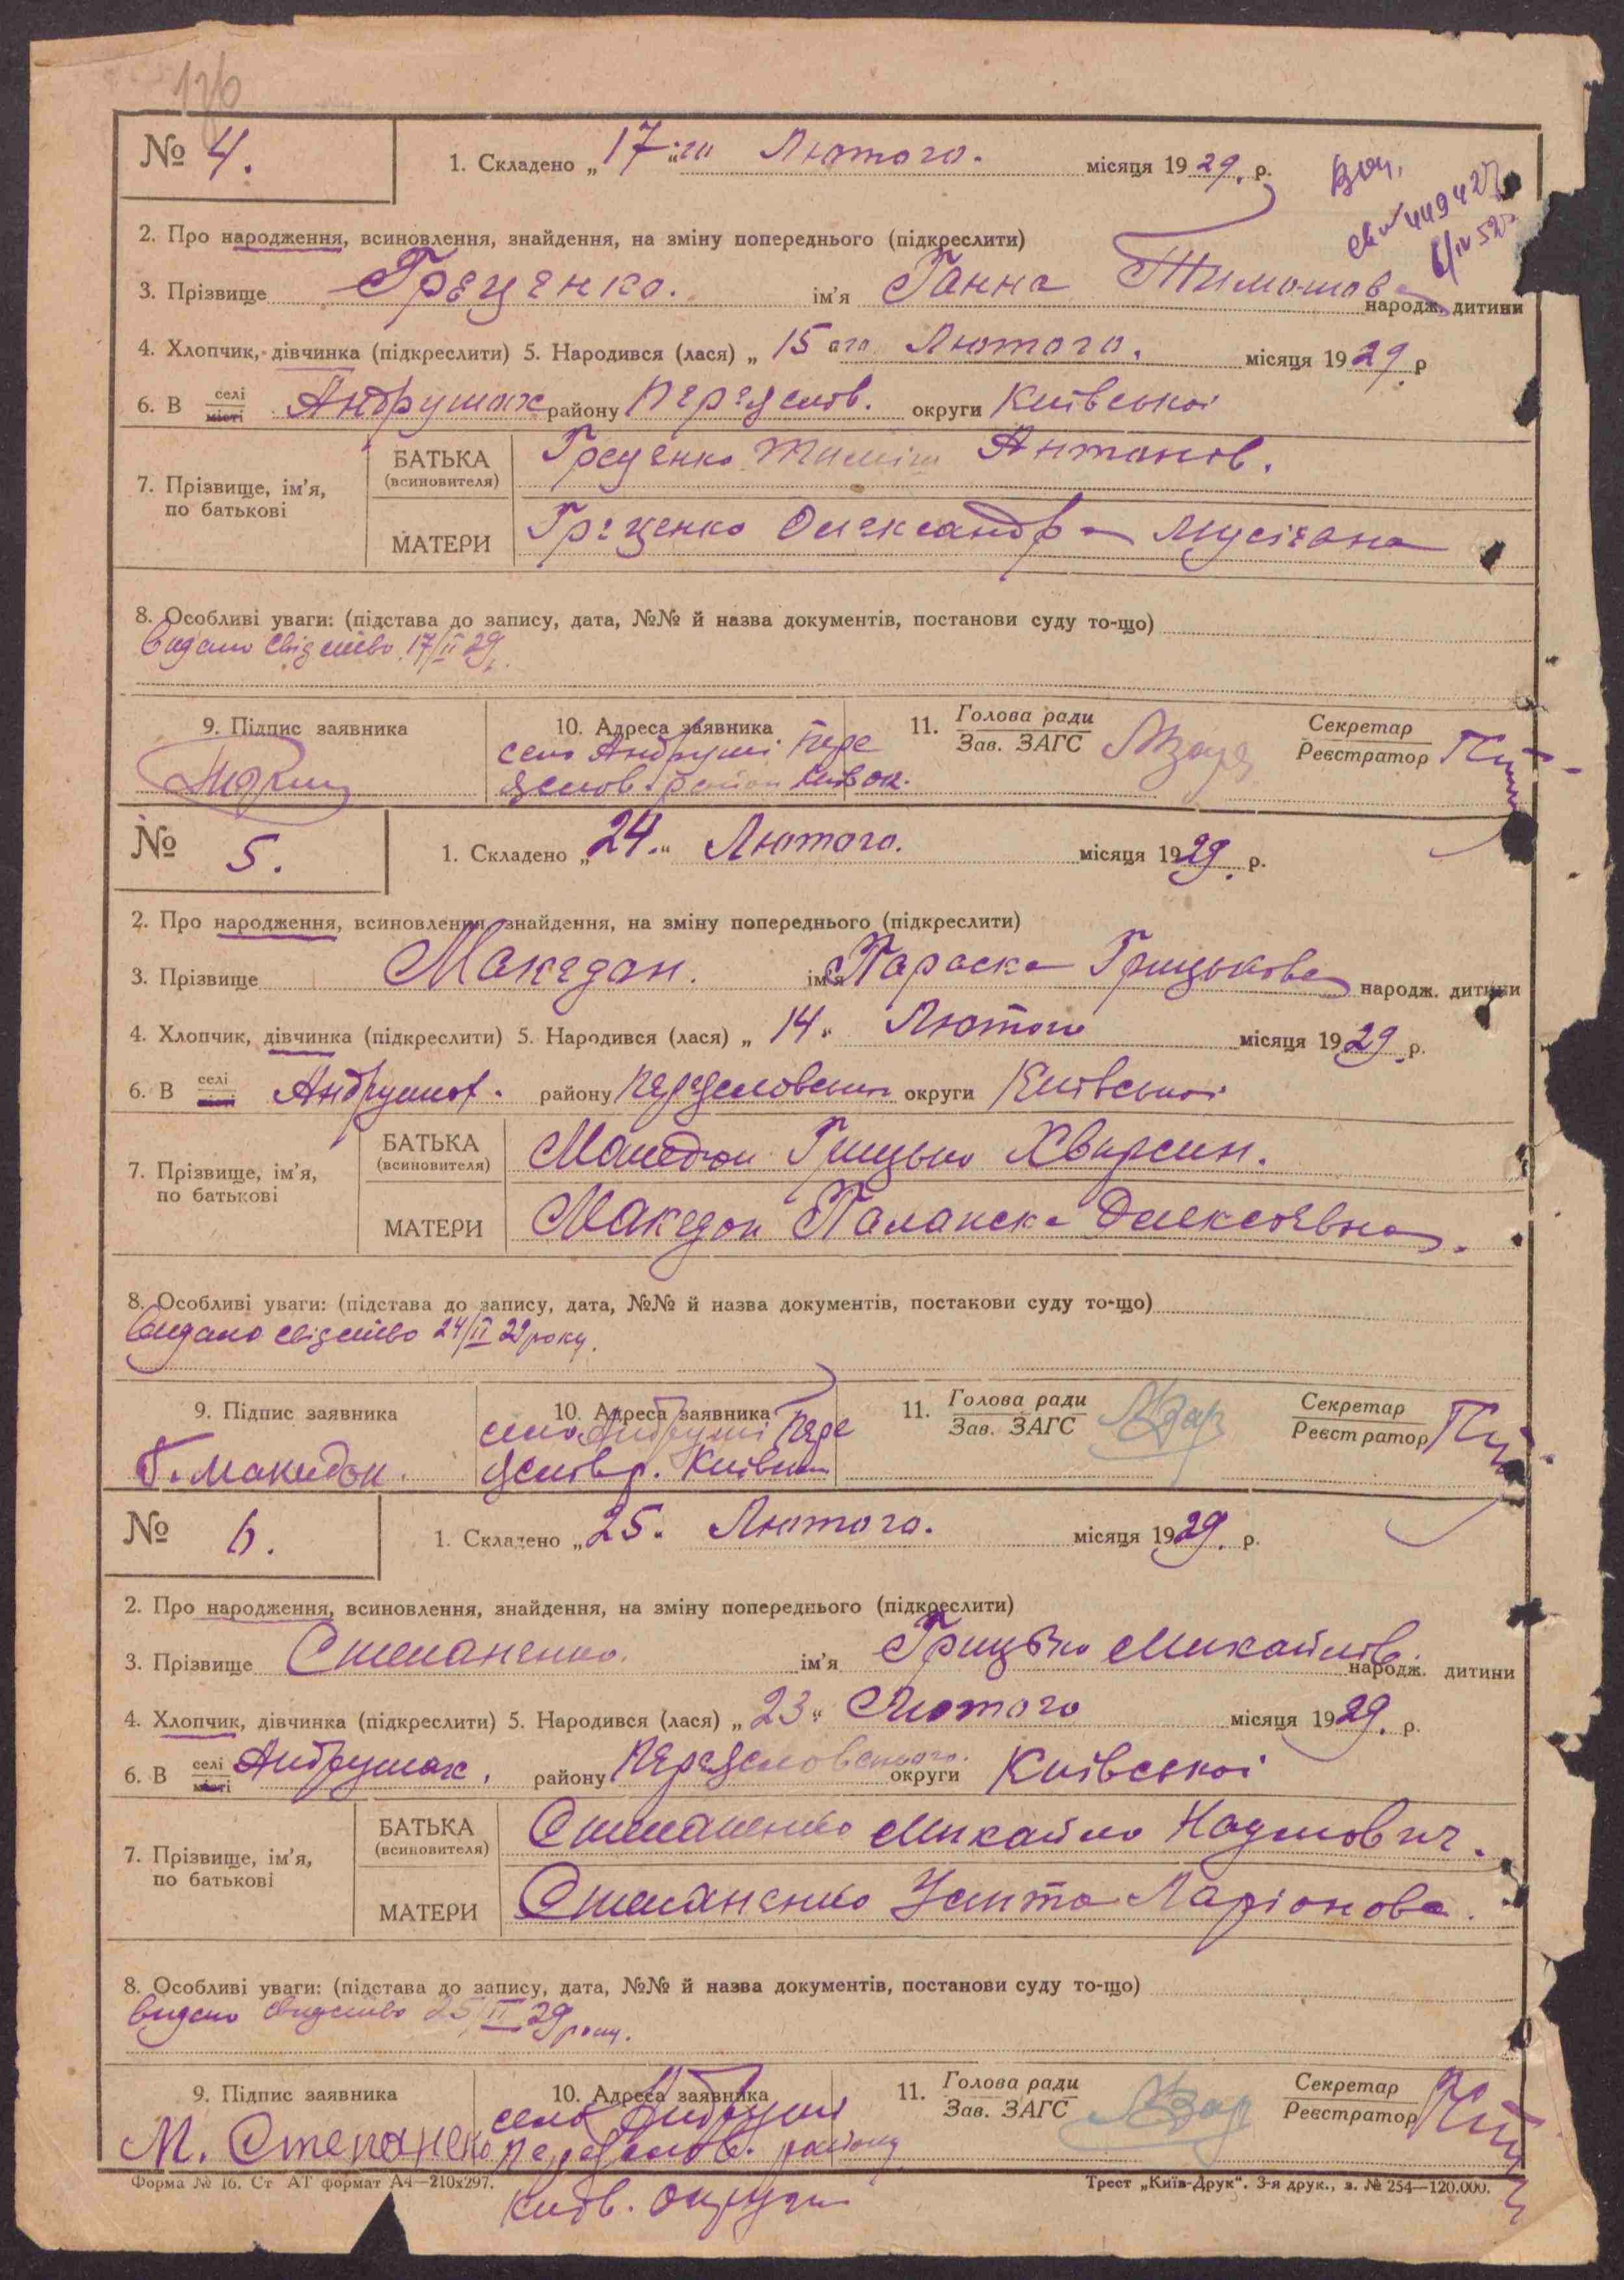 126
№ 4. 1. Складено „17-го" Лютого. місяця 1929. р.
2. Про народження, всиновлення, знайдення, на зміну попереднього (підкреслити)
св № 449427
3. Прізвище Греценко. ім'я Ганна Тимошова народж. дитини
4. Хлопчик, дівчинка (підкреслити) 5. Народився (лася) „15 ого Лютого. місяця 1929. р
6. В селі місті Андрушах району Переяслов. округи Київської
7. Прізвище, ім'я, по батькові
БАТЬКА (всиновителя) Греценко Тиміш Антонов.
МАТЕРИ Греценко Олександра Мусієвна
8. Особливі уваги: (підстава до запису, дата, №№ й назва документів, постанови суду то-що)
Видано свідецтво 17/II 29
9. Підпис заявника 10. Адреса заявника 11. Голова ради Зав. ЗАГС Секретар Реєстратор
село Андруші Пере
яслов. район Київ ок.
№ 5. 1. Складено „24." Лютого. місяця 1929. р.
2. Про народження, всиновлення, знайдення, на зміну попереднього (підкреслити)
3. Прізвище Македон. ім'я Параска Грицькова народж. дитини
4. Хлопчик, дівчинка (підкреслити) 5. Народився (лася) „14" Лютого місяця 1929. р.
6. В селі місті Андрушах. району Переясловськ округи Київської
7. Прізвище, ім'я, по батькові
БАТЬКА (всиновителя) Македон Грицько
МАТЕРИ Македон Палажка Олексієвна.
8. Особливі уваги: (підстава до запису, дата, №№ й назва документів, постакови суду то-що)
Видано свідецтво 24/II 29 року.
9. Підпис заявника 10. Адреса заявника 11. Голова ради Зав. ЗАГС Секретар Реєстратор
село Андруші Пере
Г. Македон. яслов р. Київськ
№ 6. 1. Складено „25." Лютого. місяця 1929. р.
2. Про народження, всиновлення, знайдення, на зміну попереднього (підкреслити)
3. Прізвище Степаненко. ім'я Грицько Михайлів. народж. дитини
4. Хлопчик, дівчинка (підкреслити) 5. Народився (лася) „23" Лютого місяця 1929. р.
6. В селі місті Андрушах. району Переясловського. округи Київської
7. Прізвище, ім'я, по батькові
БАТЬКА (всиновителя) Степаненко Михайло Наумович.
МАТЕРИ Степаненко Улита Ларіонова.
8. Особливі уваги: (підстава до запису, дата, №№ й назва документів, постанови суду то-що)
Видано свідецтво 25/II 29 року.
9. Підпис заявника 10. Адреса заявника 11. Голова ради Зав. ЗАГС Секретар Реєстратор
село Андруші
М. Степаненко Переяслов. району
Київ. округи
Форма № 16. Ст АТ формат А4—210х297. Трест „Київ-Друк". 3-я друк., з. № 254—120.000.